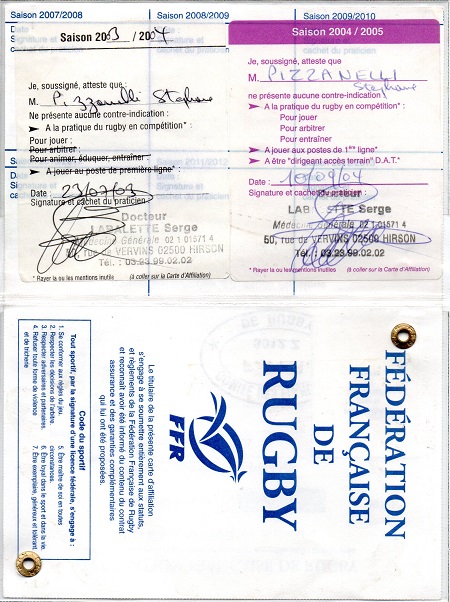 Saison 2007/2008
Saison 2008/2009
Saison 2009/2010
Saison 2003 / 2004
Je, soussigné, atteste que
M. Pizzanelli Stephane
Ne présente aucune contre-indication :
➤ A la pratique du rugby en compétition* :
Pour jouer :
Pour arbitrer :
Pour animer, éduquer, entraîner
➤ A jouer au poste de première ligne* :
Date : 23/07/03
Signature et cachet du praticien :
Docteur
LABALETTE Serge
Médecine Générale 02 1 01571 4
50, rue de VERVINS 02500 HIRSON
Tél. : 03.23.99.02.02
* Rayer la ou les mentions inutiles
(à coller sur la Carte d'Affiliation)
Saison 2004 / 2005
Je, soussigné, atteste que :
M. PIZZANELLI
Stephane
ne présente aucune contre-indication :
➤ A la pratique du rugby en compétition* :
Pour jouer
Pour arbitrer
Pour entraîner
➤ A jouer aux postes de 1ère ligne* :
➤ A être "dirigeant accès terrain" D.A.T.*
Date : 10/09/04
Signature et cachet du praticien :
Serge
Médecine Générale 02 1 01571 4
50, rue de VERVINS 02500 HIRSON
Tél. : 03.23.99.02.02
* Rayer la ou les mentions inutiles
(à coller sur la Carte d'Affiliation)
FÉDÉRATION
FRANÇAISE
DE
RUGBY
FFR
Le titulaire de la présente carte d'affiliation
s'engage à se soumettre pleinement aux statuts,
et règlements de la Fédération Française de Rugby
et reconnaît avoir été informé du contenu du contrat
assurance et des garanties complémentaires
qui lui ont été proposées.
Code du sportif
Tout sportif, par la signature d'une licence fédérale, s'engage à :
1. Se conformer aux règles du jeu.
2. Respecter les décisions de l'arbitre.
3. Respecter adversaires et partenaires.
4. Refuser toute forme de violence
et de tricherie
5. Être maître de soi en toutes
circonstances.
6. Être loyal dans le sport et dans la vie.
7. Être exemplaire, généreux et tolérant.